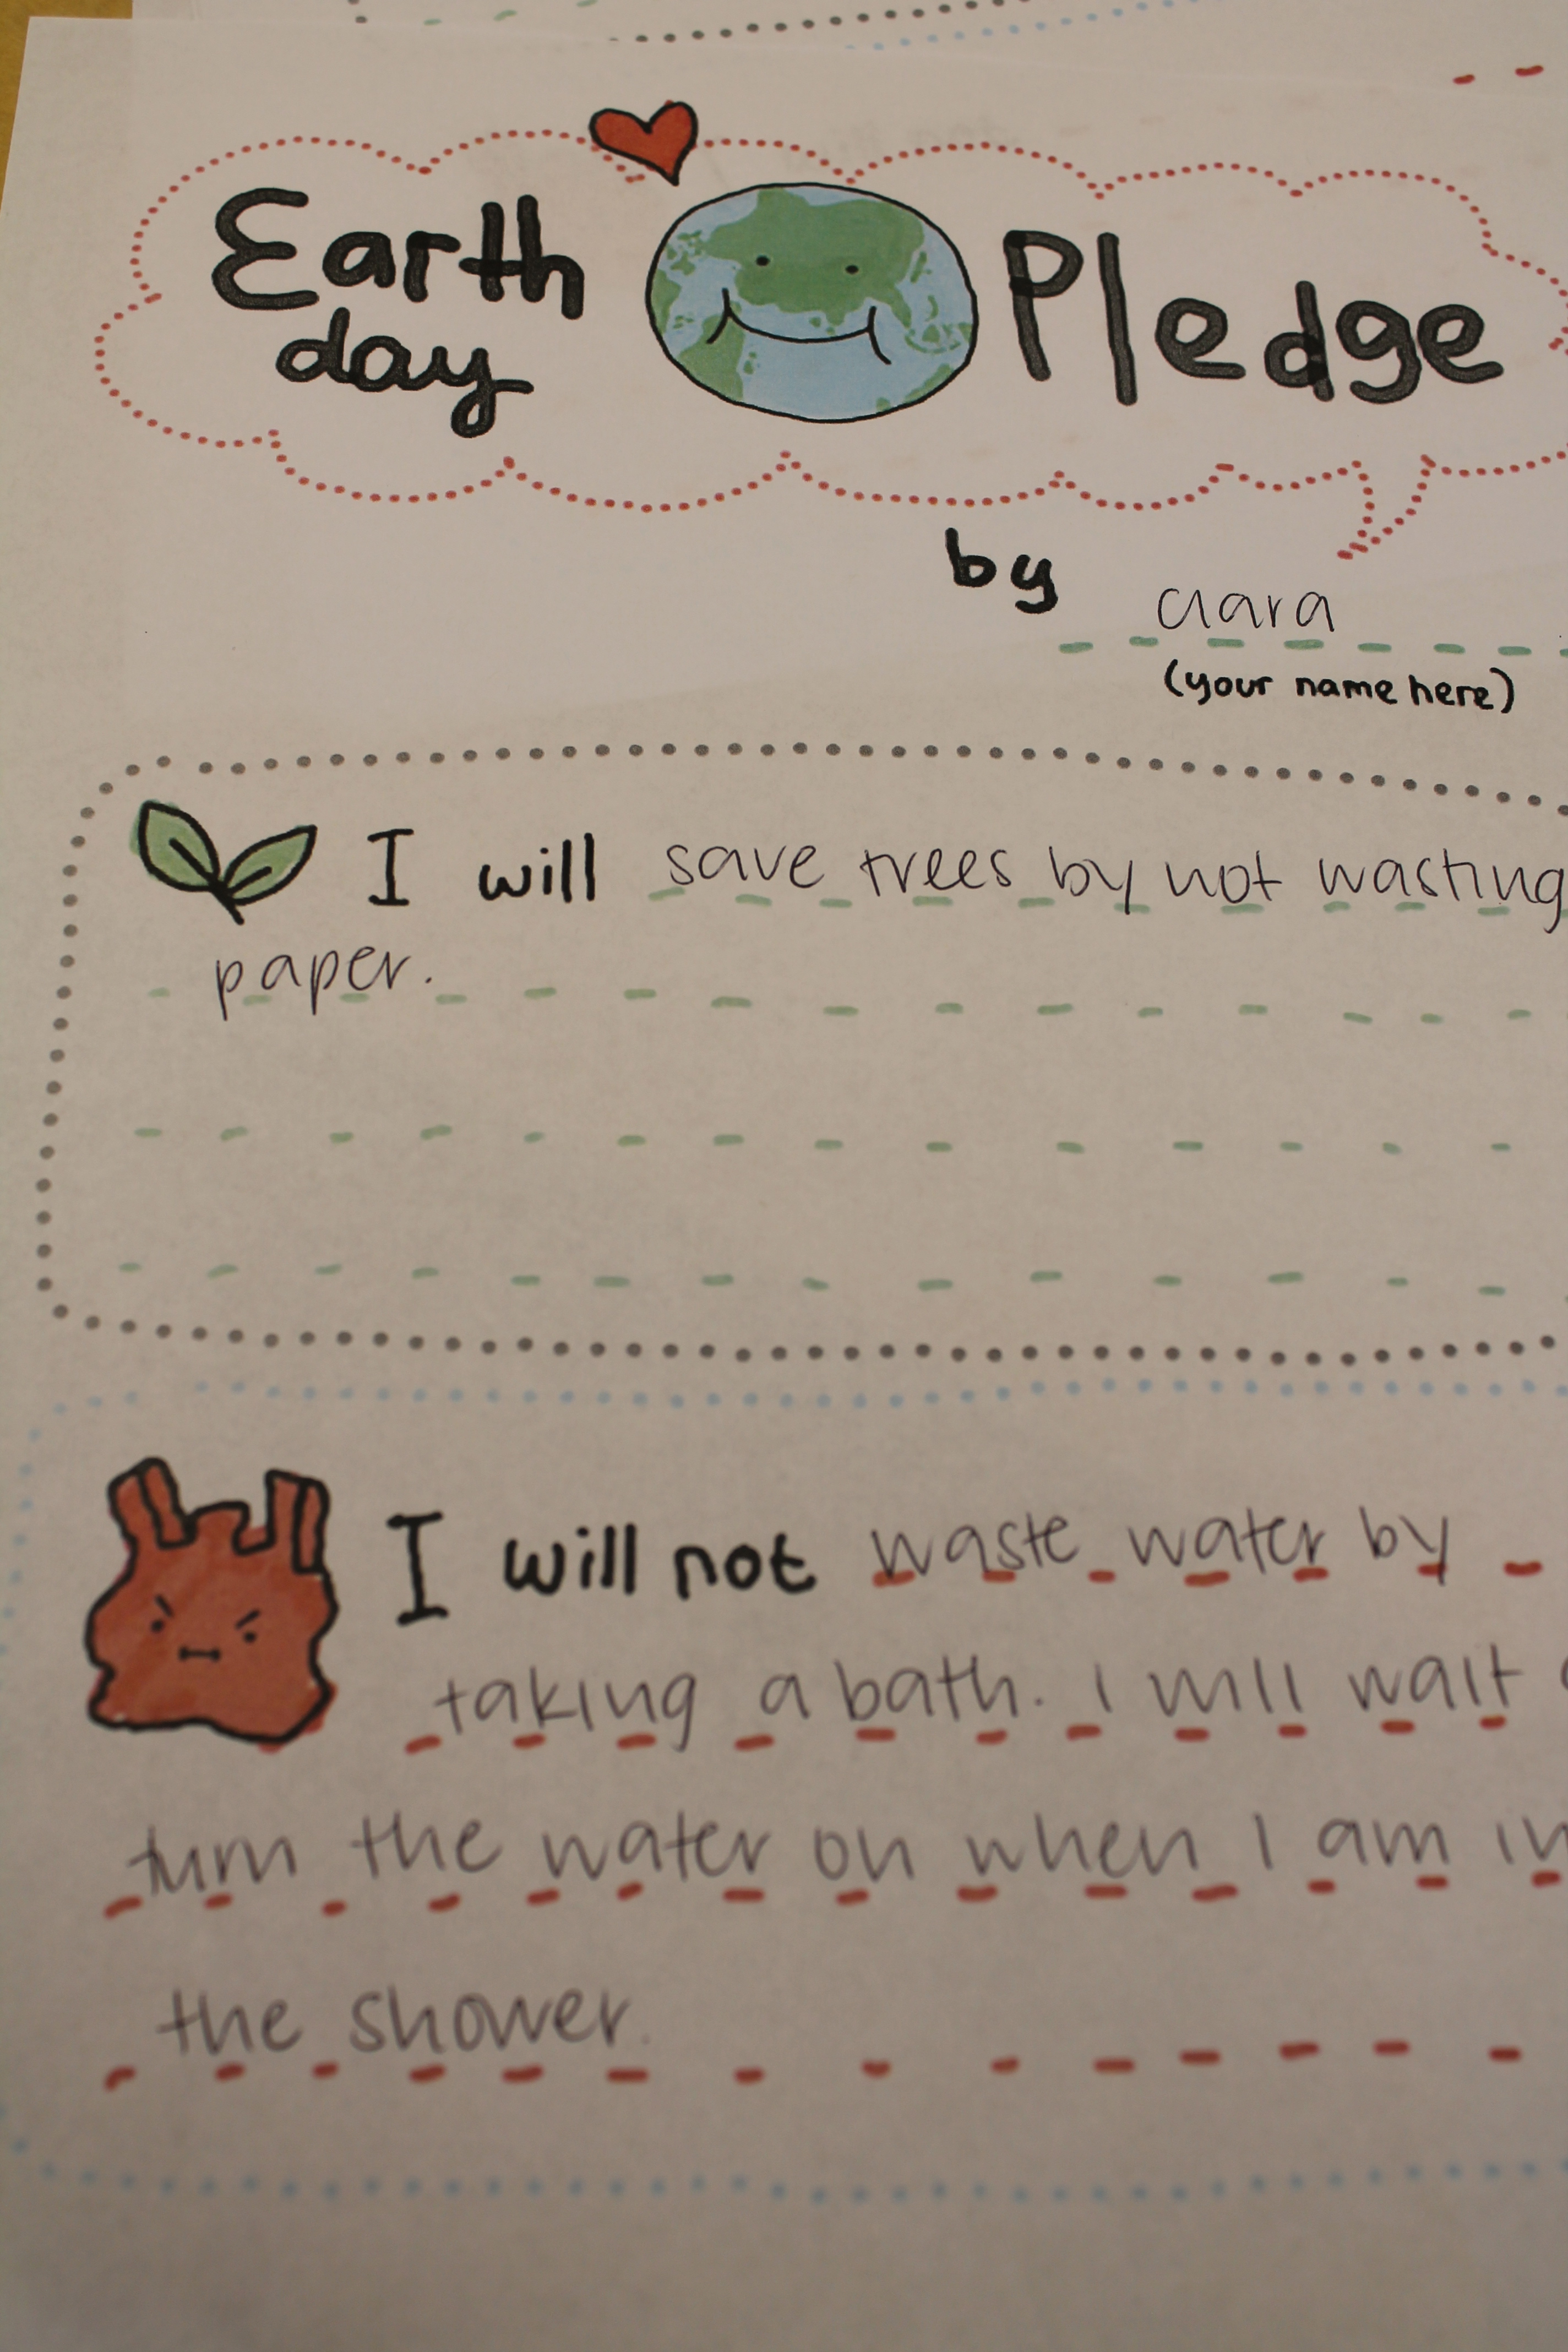 Earth Pledge
day
by clara
(your name here)
I will save trees by not wasting
paper.
I will not waste water by
taking a bath. I will wait
turn the water on when I am in
the shower.